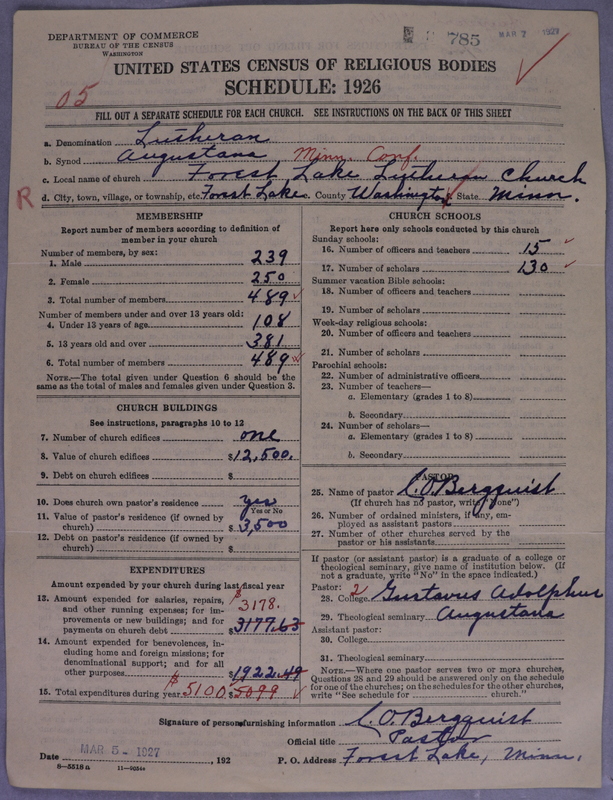 DEPARTMENT OF COMMERCE
BUREAU OF THE CENSUS
WASHINGTON
785
MAR 7 1927
UNITED STATES CENSUS OF RELIGIOUS BODIES
SCHEDULE: 1926
05
FILL OUT A SEPARATE SCHEDULE FOR EACH CHURCH. SEE INSTRUCTIONS ON THE BACK OF THIS SHEET
a. Denomination Lutheran
b. Synod Augustana Minn. Conf.
c. Local name of church Forest Lake Lutheran Church
R d. City, town, village, or township, etc. Forest Lake e. County Washington State Minn.
MEMBERSHIP
Report number of members according to definition of
member in your church
Number of members, by sex:
1. Male 239
2. Female 250
3. Total number of members 489
Number of members under and over 13 years old:
4. Under 13 years of age 108
5. 13 years old and over 381
6. Total number of members 489
NOTE.—The total given under Question 6 should be the
same as the total of males and females given under Question 3.
CHURCH BUILDINGS
See instructions, paragraphs 10 to 12
7. Number of church edifices one
8. Value of church edifices $12,500.
9. Debt on church edifices $
10. Does church own pastor's residence yes
Yes or No
11. Value of pastor's residence (if owned by
church) $3,500
12. Debt on pastor's residence (if owned by
church) $
EXPENDITURES
Amount expended by your church during last fiscal year
13. Amount expended for salaries, repairs,
and other running expenses; for im-
provements or new buildings; and for
payments on church debt $3177.63
$3178.
14. Amount expended for benevolences, in-
cluding home and foreign missions; for
denominational support; and for all
other purposes $1922.49
15. Total expenditures during year $5100 $5099
CHURCH SCHOOLS
Report here only schools conducted by this church
Sunday schools:
16. Number of officers and teachers 15
17. Number of scholars 130
Summer vacation Bible schools:
18. Number of officers and teachers
19. Number of scholars
Week-day religious schools:
20. Number of officers and teachers
21. Number of scholars
Parochial schools:
22. Number of administrative officers
23. Number of teachers—
a. Elementary (grades 1 to 8)
b. Secondary
24. Number of scholars—
a. Elementary (grades 1 to 8)
b. Secondary
PASTOR
25. Name of pastor C. O. Bergquist
(If church has no pastor, write "None")
26. Number of ordained ministers, if any, em-
ployed as assistant pastors
27. Number of other churches served by the
pastor or his assistants
If pastor (or assistant pastor) is a graduate of a college or
theological seminary, give name of institution below. (If
not a graduate, write "No" in the space indicated.)
Pastor: 2
28. College Gustavus Adolphus
29. Theological seminary Augustana
Assistant pastor:
30. College
31. Theological seminary
NOTE.—Where one pastor serves two or more churches,
Questions 28 and 29 should be answered only on the schedule
for one of the churches; on schedules for the other churches,
write "See schedule for church."
Signature of person furnishing information C. O. Bergquist
Official title Pastor
Date MAR 5 - 1927, 192 P. O. Address Forest Lake, Minn.
8—5518a 11—9054a